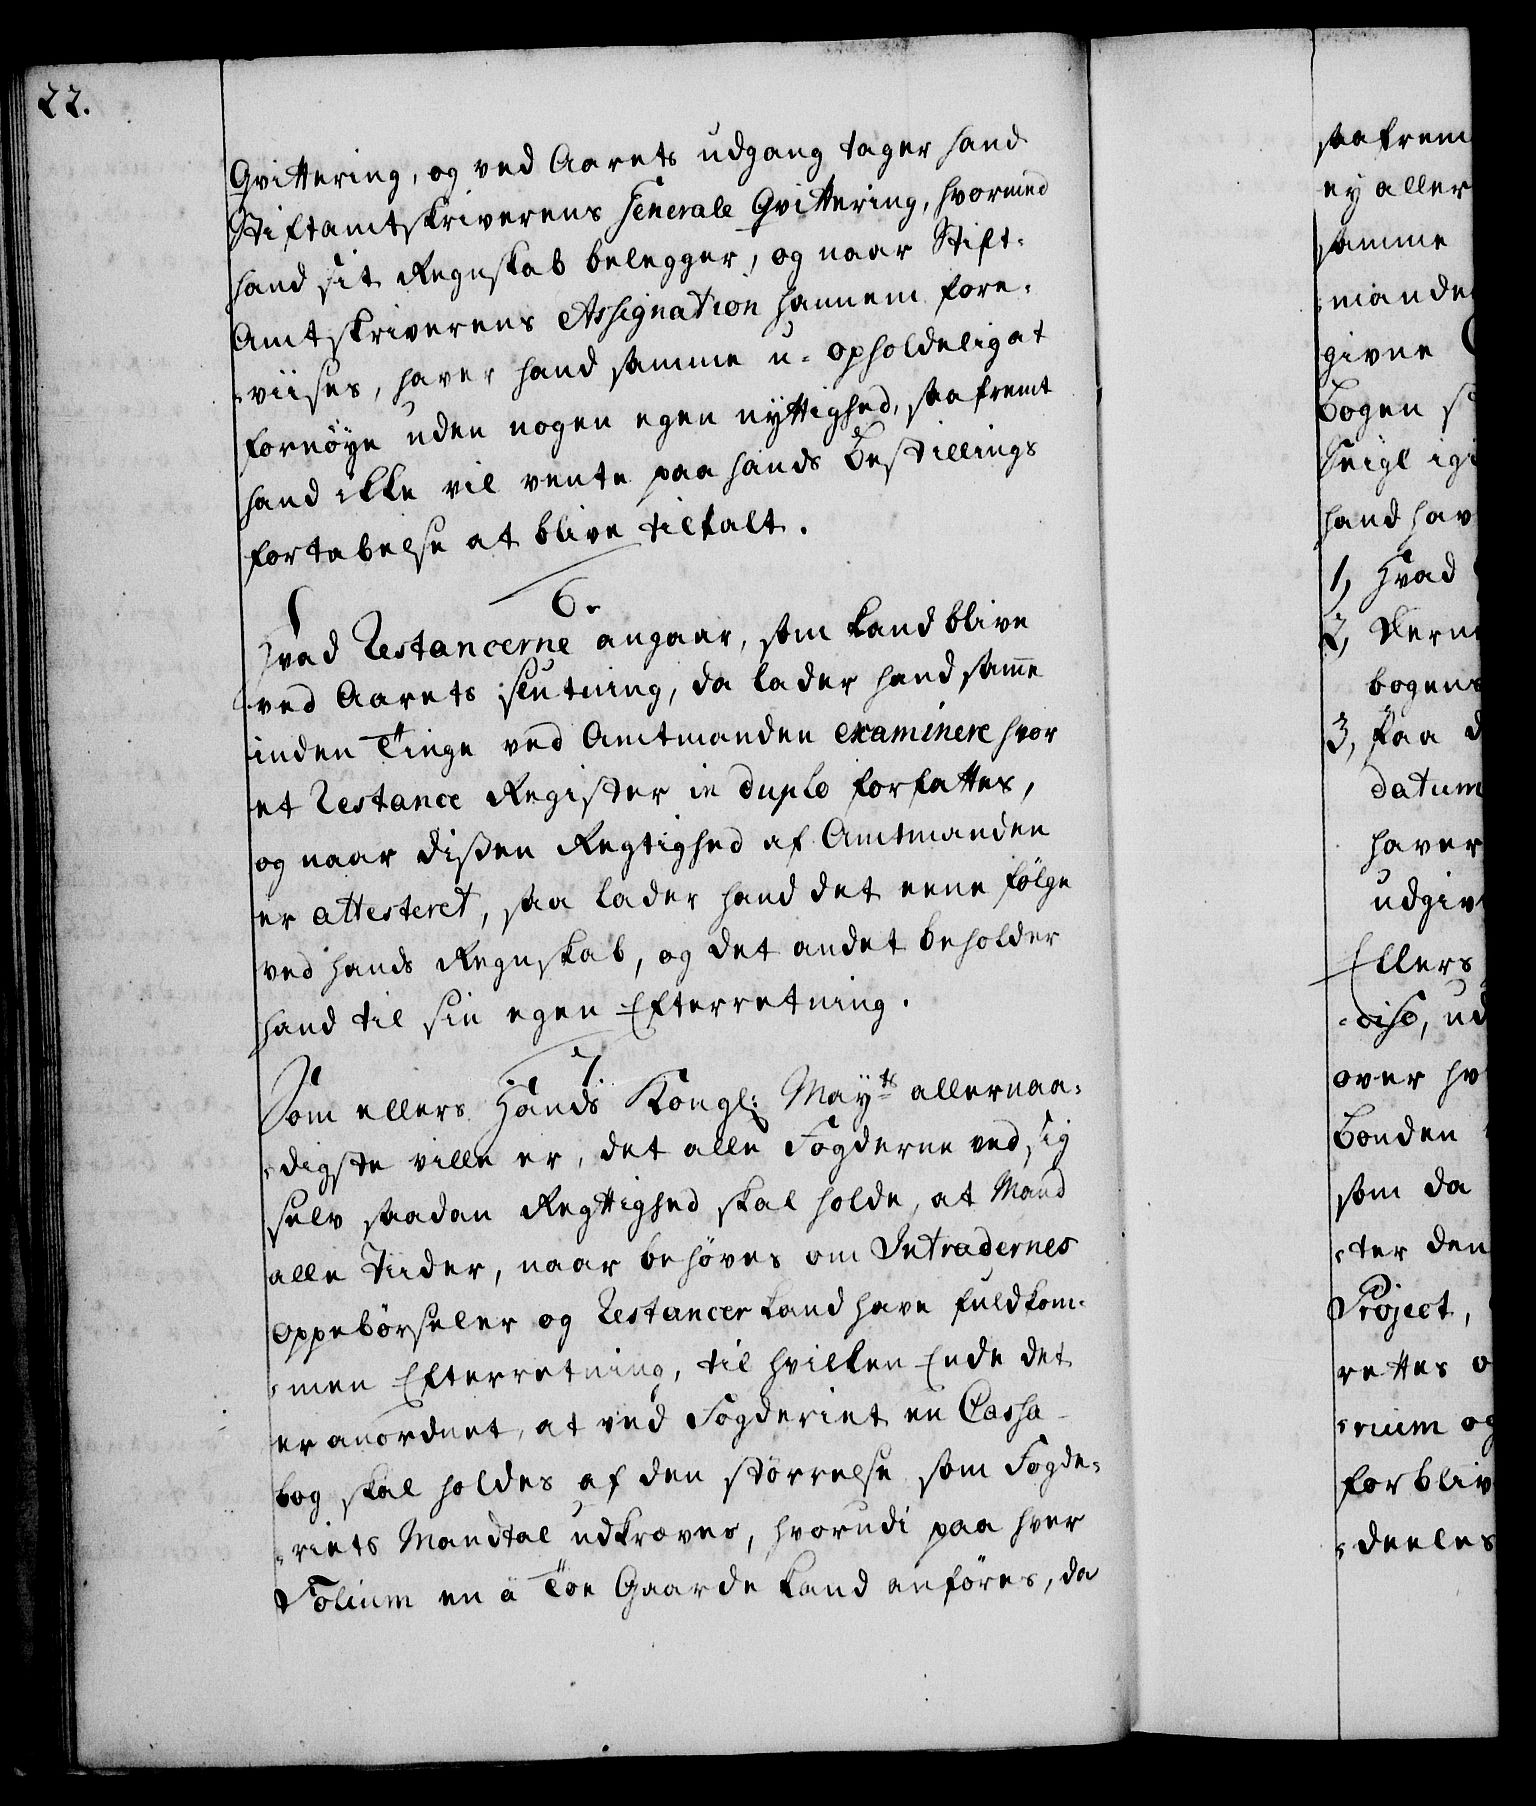 22.
Qvittering, og ved Aarets udgang tager hand
Stiftamtskriverens Generale Qvittering, hvormed
hand sit Regnskab belegger, og naar Stift-
Amtskriverens Assignation hannem fore-
-viises, haver hand samme u-opholdeligat
fornøye uden nogen egen nyttighed, saafremt
hand ikke vil vente paa hands Bestillings
fortabelse at blive tiltalt.
6.
Hvad Restancerne angaar, som kand blive
ved Aarets slutning, da lader hand samme
inden Tinge ved Amtmanden examinere hvor
et Restance Register in duplo forfattes,
og naar dißen Regtighed af Amtmanden
er attesteret, saa lader hand det eene følge
ved hands Regnskab, og det andet beholder
hand til sin egen Efterretning.
7.
Som ellers Hands Kongl: Mayts allernaa-
-digste ville er, det alle Fogderne ved sig
selv saadan Regttighed skal holde, at Mand
alle Tiider, naar behøves om Intradernes
Oppebørseler og Restancer kand have fuldkom-
-men Efterretning, til hvilken Ende det
er anordnet, at ved Fogderiet en Cassa-
bog skal holdes af den størrelse som Fogde-
-riets Mandtal udkrover, hvorudi paa hver
Folium en à Toe Gaarde kand anføres, da
saafrem
ey aller
samme
-mande
givne
bogen
hand hav
1, Hvad
2, Dern
bogens
3, Paa d
datum
haver
udgiv
Ellers
-diso, ud
over hv
bonden
som da
-ter den
Project,
rettes o
-rium og
forbliv
-deeles